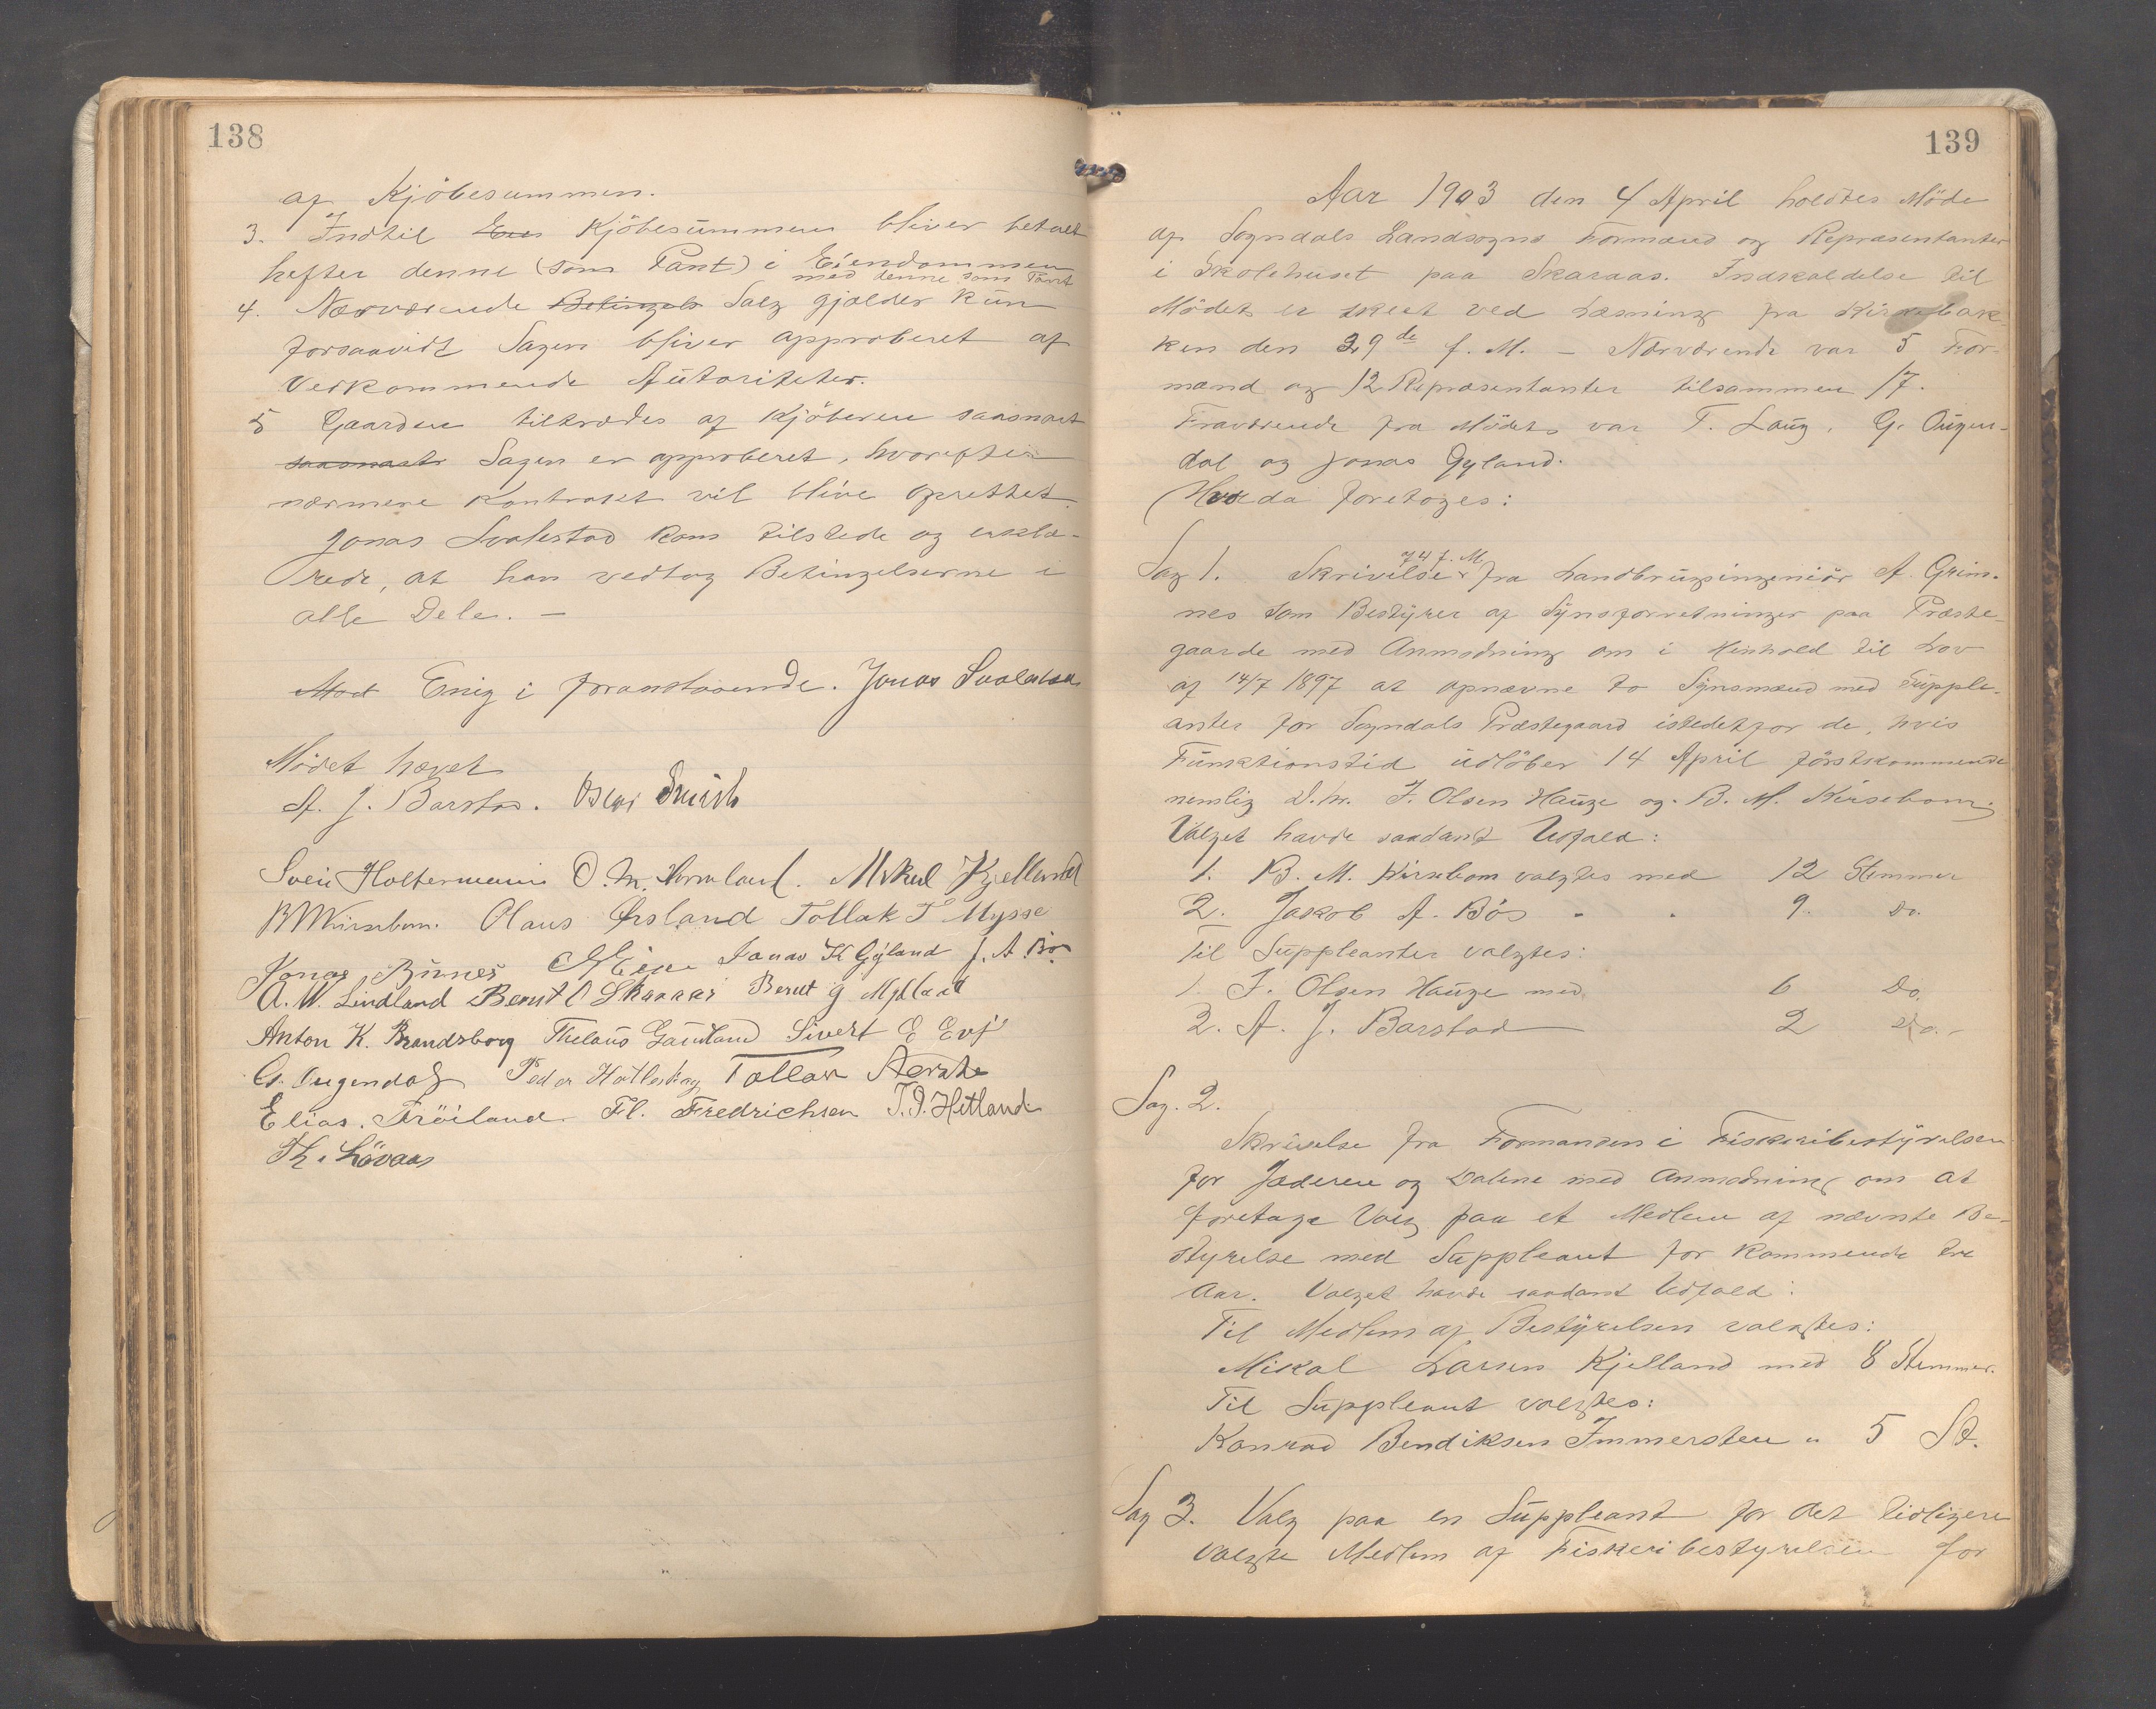 138
af Kjöbesummen.
3. Indtil Kjöbesummen bliver betalt
hefter denne (som Pant) i Eiendommen
med denne som Pant
4. Nærværende Betingels Salg gjælder kun
forsaavidt Sagen bliver approberet af
Vedkommende Autoriteter.
5 Gaarden tiltrædes af Kjöberen saasnart
saasnart Sagen er approberet, hvorefter
nærmere Kontrakt vil blive oprettet.
Jonas Svalestad kom tilstede og erklæ-
rede, at han vedtog Betingelserne i
alle Dele. —
Mød Enig i foranstaaende. Jonas Svalestad
Mödet hævet
A. J. Barstad. Oscar Smith
Svein Holtermann O. M. Hermland. Mikal Kjelland
B M Kirsebom. Olaus Örsland Tollak T Mysse
Jonas Rünes Jonas K Gyland J. A. Bö
A. W. Lindland Bernt O Skaaraas Bernt G Mydland
Anton K. Brandsberg Thelaus Gauland Sivert E Evje
G. Ougendal Peder Hatleskog Tollak Aarstad
Elias Tröiland Fl. Fredrichsen T. I. Hetland
Th. Lövaas
139
Aar 1903 den 4 April holdtes Möde
af Sogndals Landsogns Formænd og Repræsentanter
i Skolehuset paa Skaraas. Indkaldelse til
Mödet er skeet ved Læsning fra Kirkebak-
ken den 29de f. M. — Nærværende var 5 For-
mænd og 12 Repræsentanter tilsammen 17.
Fraværende fra Mödet var T. Laug, G. Ougen-
dal og Jonas Gyland.
Hvor da foretoges:
Sag 1. Skrivelse 7/4 f. M. fra Landbrugsingeniör A. Grim-
nes som Bestyrer af Synsforretninger paa Præste-
gaarde med Anmodning om i Henhold til Lov
af 14/7 1897 at opnævne to Synsmænd med Supple-
anter for Sogndals Præstegaard istedetfor de, hvis
Funktionstid udlöber 14 April förstkommende
nemlig D. Hr. F. Olsen Hauge og B. M. Kirsebom.
Valget havde saadant Udfald:
1. B. M. Kirsebom valgtes med 12 Stemmer
2. Jakob A. Bös " " 9. Do.
Til Suppleanter valgtes:
1. F. Olsen Hauge med 6 Do.
2. A. J. Barstad — 2 Do.
Sag. 2.
Skrivelse fra Formanden i Fiskeribestyrelsen
for Jæderen og Dalene med Anmodning om at
foretage Valg paa et Medlem af nævnte Be-
styrelse med Suppleant for kommende tre
Aar. Valget havde saadant Udfald:
Til Medlem af Bestyrelsen valgtes:
Mikal Larsen Kjelland med 8 Stemmer.
Til Suppleant valgtes:
Konrad Bendiksen Immersten " 5 St.
Sag 3. Valg paa en Suppleant for det tidligere
valgte Medlem af Fiskeribestyrelsen for